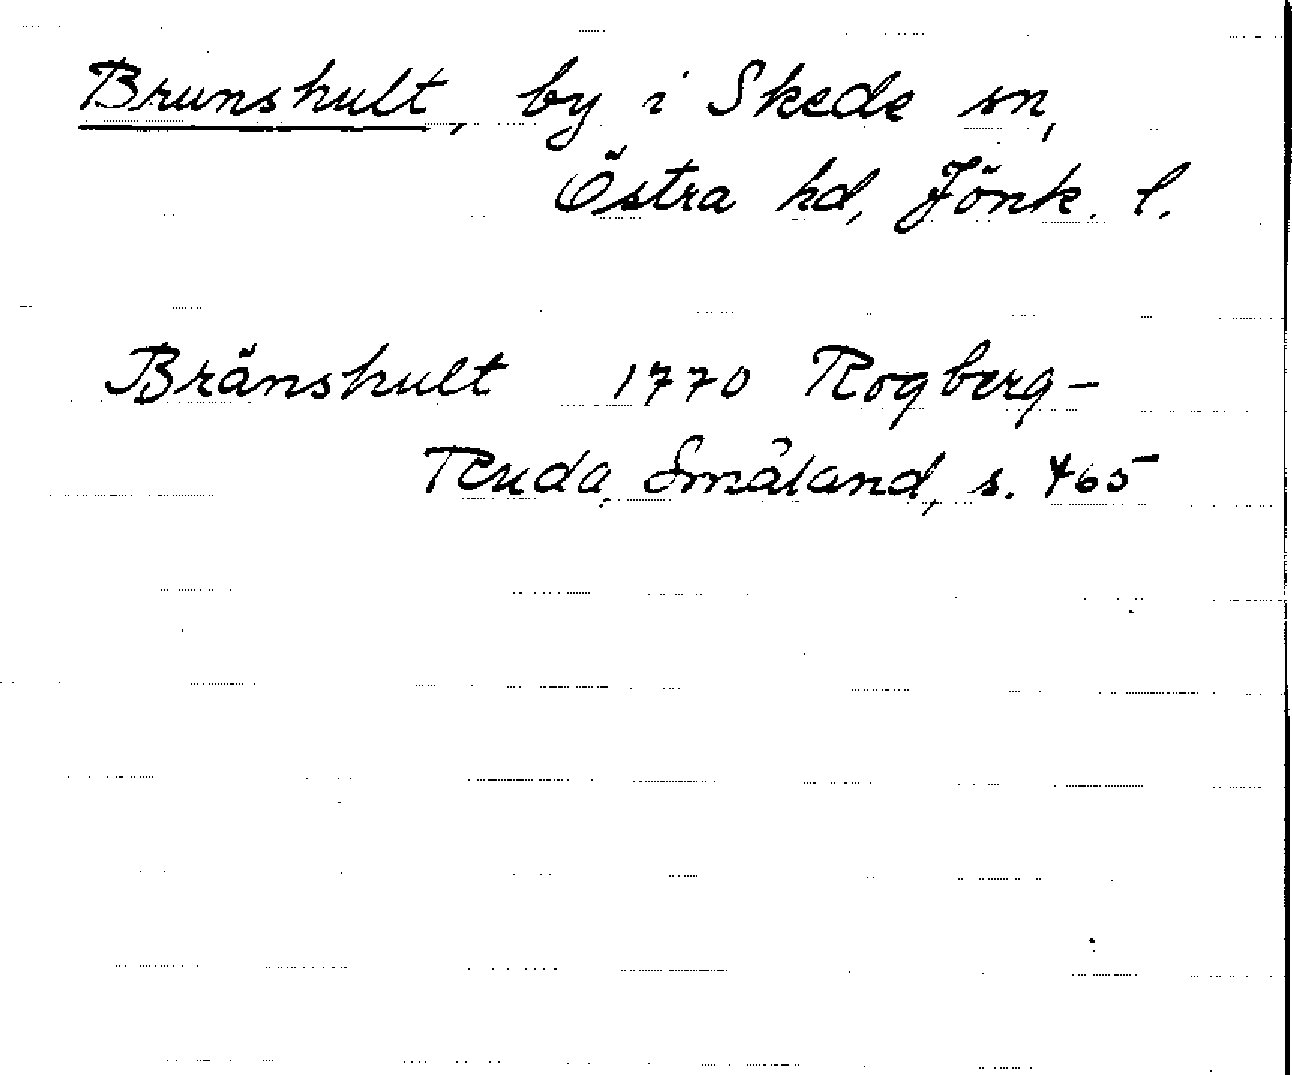 Brunshult, by i Skede sn,
Östra hd, Jönk. l.
Bränshult 1770 Rogberg-
Ruda, Småland, s. 465